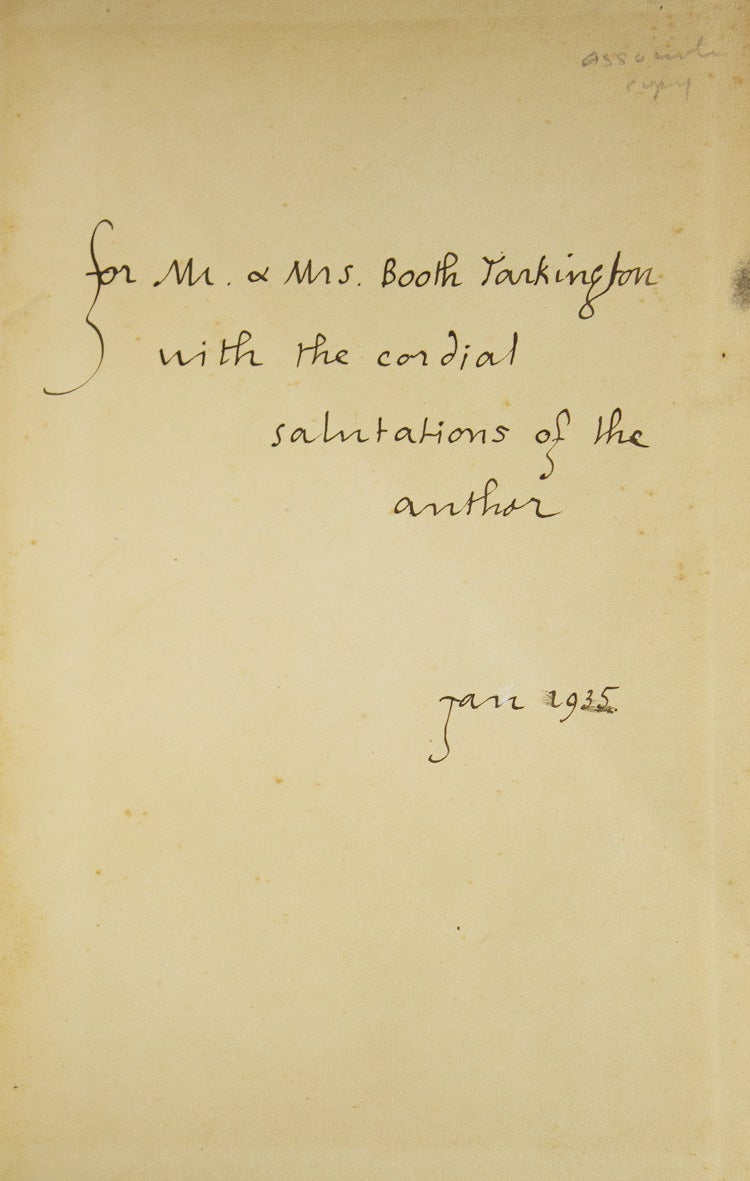 copy
for Mr. & Mrs. Booth Tarkington
with the cordial
salutations of the
author
Jan 1935.